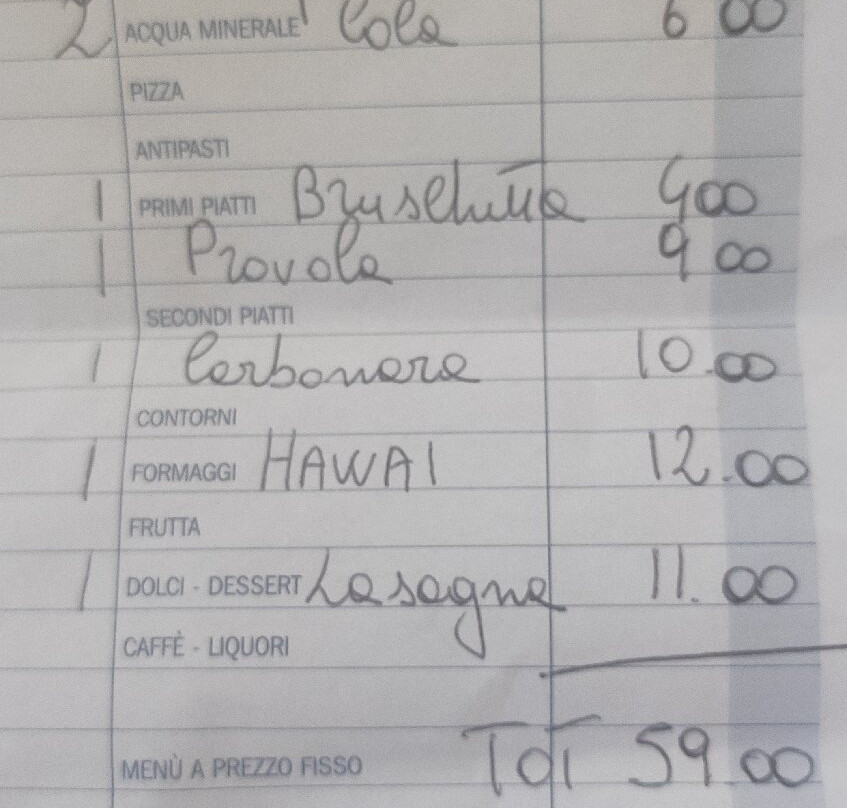 2 ACQUA MINERALE Cola 6 00
PIZZA
ANTIPASTI
1 PRIMI PIATTI Bruschetta 4 00
1 Provola 9 00
SECONDI PIATTI
1 Carbonara 10.00
CONTORNI
1 FORMAGGI HAWAI 12.00
FRUTTA
1 DOLCI - DESSERT Lasagna 11.00
CAFFÈ - LIQUORI
MENÙ A PREZZO FISSO TOT 59 00